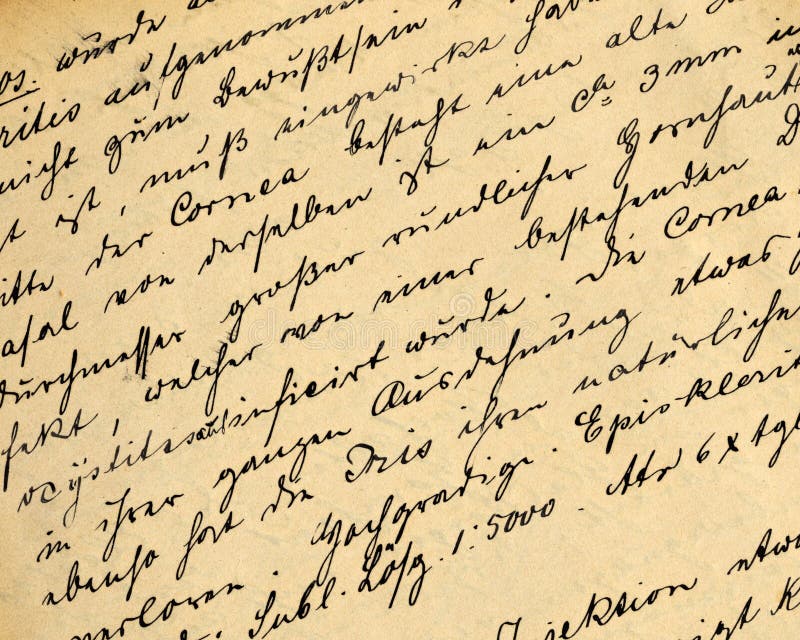 os. wurde
ritis aufgenommen
nicht zum Bewußtsein
t ist, muß eingewirkt hab
itte der Cornea besteht eine alte
asal von derselben ist ein ca 3 mm in
durchmesser großer rundlicher Hornhaut
fekt, welcher von einer bestehenden D
ocystitis aus inficirt wurde. Die Cornea
in ihrer ganzen Ausdehnung etwas
ebenso hat die Iris ihren natürliche
verloren. Hochgradige Episklerit
Subl. Lösg. 1:5000. Atr 6 x tgl
Injektion etw